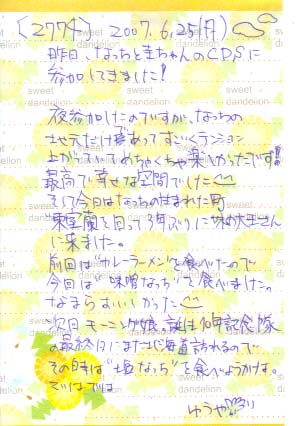 〈277通〉 2007.6.25(月)
昨日、なっちと圭ちゃんのCDSに
参加してきました!
夜参加したのですが、なっちの
地元だけあってすごくテンション
上がっていてめちゃくちゃ楽しかったです!!
最高で幸せな空間でした
そして今日はなっちの生まれた町
室蘭を回って3年ぶりに味の大王さん
に来ました。
前回は"カレーラーメン"を食べたので
今回は"味噌なっち"を食べました。
なまらおいしかった
次回 モーニング娘。誕生10年記念隊
の最終日にまた北海道を訪れるので
その時は"塩なっち"を食べようかな。
ではでは
ゆうや
sweet dandelion